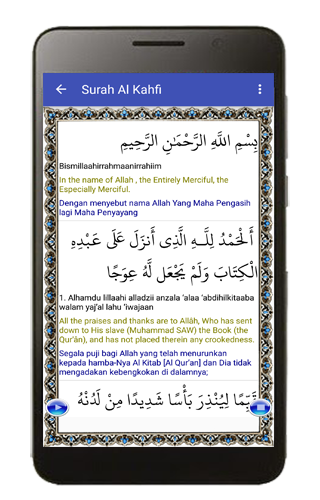 Surah Al Kahfi
بِسْمِ اللَّهِ الرَّحْمَٰنِ الرَّحِيمِ
Bismillaahirrahmaanirrahiim
In the name of Allah , the Entirely Merciful, the
Especially Merciful.
Dengan menyebut nama Allah Yang Maha Pengasih
lagi Maha Penyayang
اَلْحَمْدُ لِلَّـهِ الَّذِى أَنزَلَ عَلَى عَبْدِهِ
الْكِتَابَ وَلَمْ يَجْعَل لَّهُ عِوَجًا
1. Alhamdu lillaahi alladzii anzala 'alaa 'abdihilkitaaba
walam yaj'al lahu 'iwajaan
All the praises and thanks are to Allâh, Who has sent
down to His slave (Muhammad SAW) the Book (the
Qur'ân), and has not placed therein any crookedness.
Segala puji bagi Allah yang telah menurunkan
kepada hamba-Nya Al Kitab [Al Qur'an] dan Dia tidak
mengadakan kebengkokan di dalamnya;
قَيِّمًا لِيُنْذِرَ بَأْسًا شَدِيدًا مِنْ لَدُنْهُ